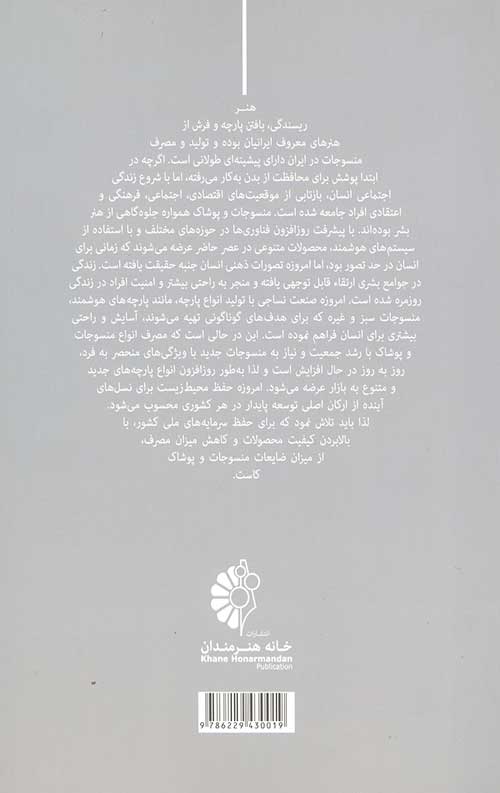 هنـر
ریسندگی، بافتن پارچه و فرش از
هنرهای معروف ایرانیان بوده و تولید و مصرف
منسوجات در ایران دارای پیشینه‌ای طولانی است. اگرچه در
ابتدا پوشش برای محافظت از بدن به‌کار می‌رفته، اما با شروع زندگی
اجتماعی انسان، بازتابی از موقعیت‌های اقتصادی، اجتماعی، فرهنگی و
اعتقادی افراد جامعه شده است. منسوجات و پوشاک همواره جلوه‌گاهی از هنر
بشر بوده‌اند. با پیشرفت روزافزون فناوری‌ها در حوزه‌های مختلف و با استفاده از
سیستم‌های هوشمند، محصولات متنوعی در عصر حاضر عرضه می‌شوند که زمانی برای
انسان در حد تصور بود، اما امروزه تصورات ذهنی انسان جنبه حقیقت یافته است. زندگی
در جوامع بشری ارتقاء قابل توجهی یافته و منجر به راحتی بیشتر و امنیت افراد در زندگی
روزمره شده است. امروزه صنعت نساجی با تولید انواع پارچه، مانند پارچه‌های هوشمند،
منسوجات سبز و غیره که برای هدف‌های گوناگونی تهیه می‌شوند، آسایش و راحتی
بیشتری برای انسان فراهم نموده است. این در حالی است که مصرف انواع منسوجات
و پوشاک با رشد جمعیت و نیاز به منسوجات جدید با ویژگی‌های منحصر به فرد،
روز به روز در حال افزایش است و لذا به‌طور روزافزون انواع پارچه‌های جدید
و متنوع به بازار عرضه می‌شود. امروزه حفظ محیط‌زیست برای نسل‌های
آینده از ارکان اصلی توسعه پایدار در هر کشوری محسوب می‌شود.
لذا باید تلاش نمود که برای حفظ سرمایه‌های ملی کشور، با
بالابردن کیفیت محصولات و کاهش میزان مصرف،
از میزان ضایعات منسوجات و پوشاک
کاست.
انتشارات
خانه هنرمندان
Khane Honarmandan
Publication
9 786229 430019